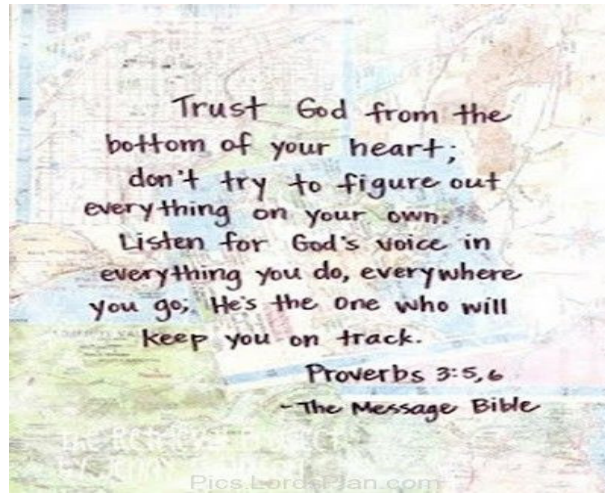 Trust God from the
bottom of your heart;
don't try to figure out
everything on your own.
Listen for God's voice in
everything you do, everywhere
you go; He's the one who will
keep you on track.
Proverbs 3:5,6
-The Message Bible
Pics.LordsPlan.com